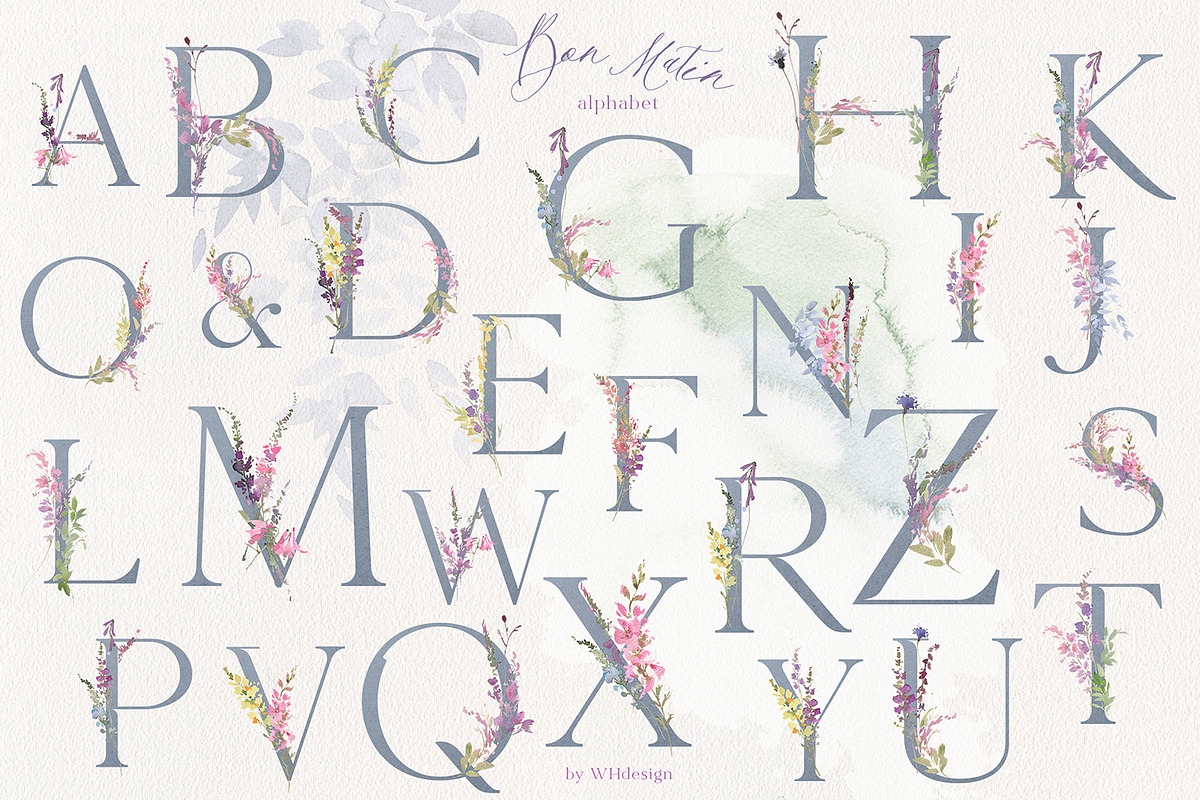 Bon Matin
alphabet
A B C G H K
O & D E N I J
L M W F R Z S
P V Q X Y U T
by WHdesign